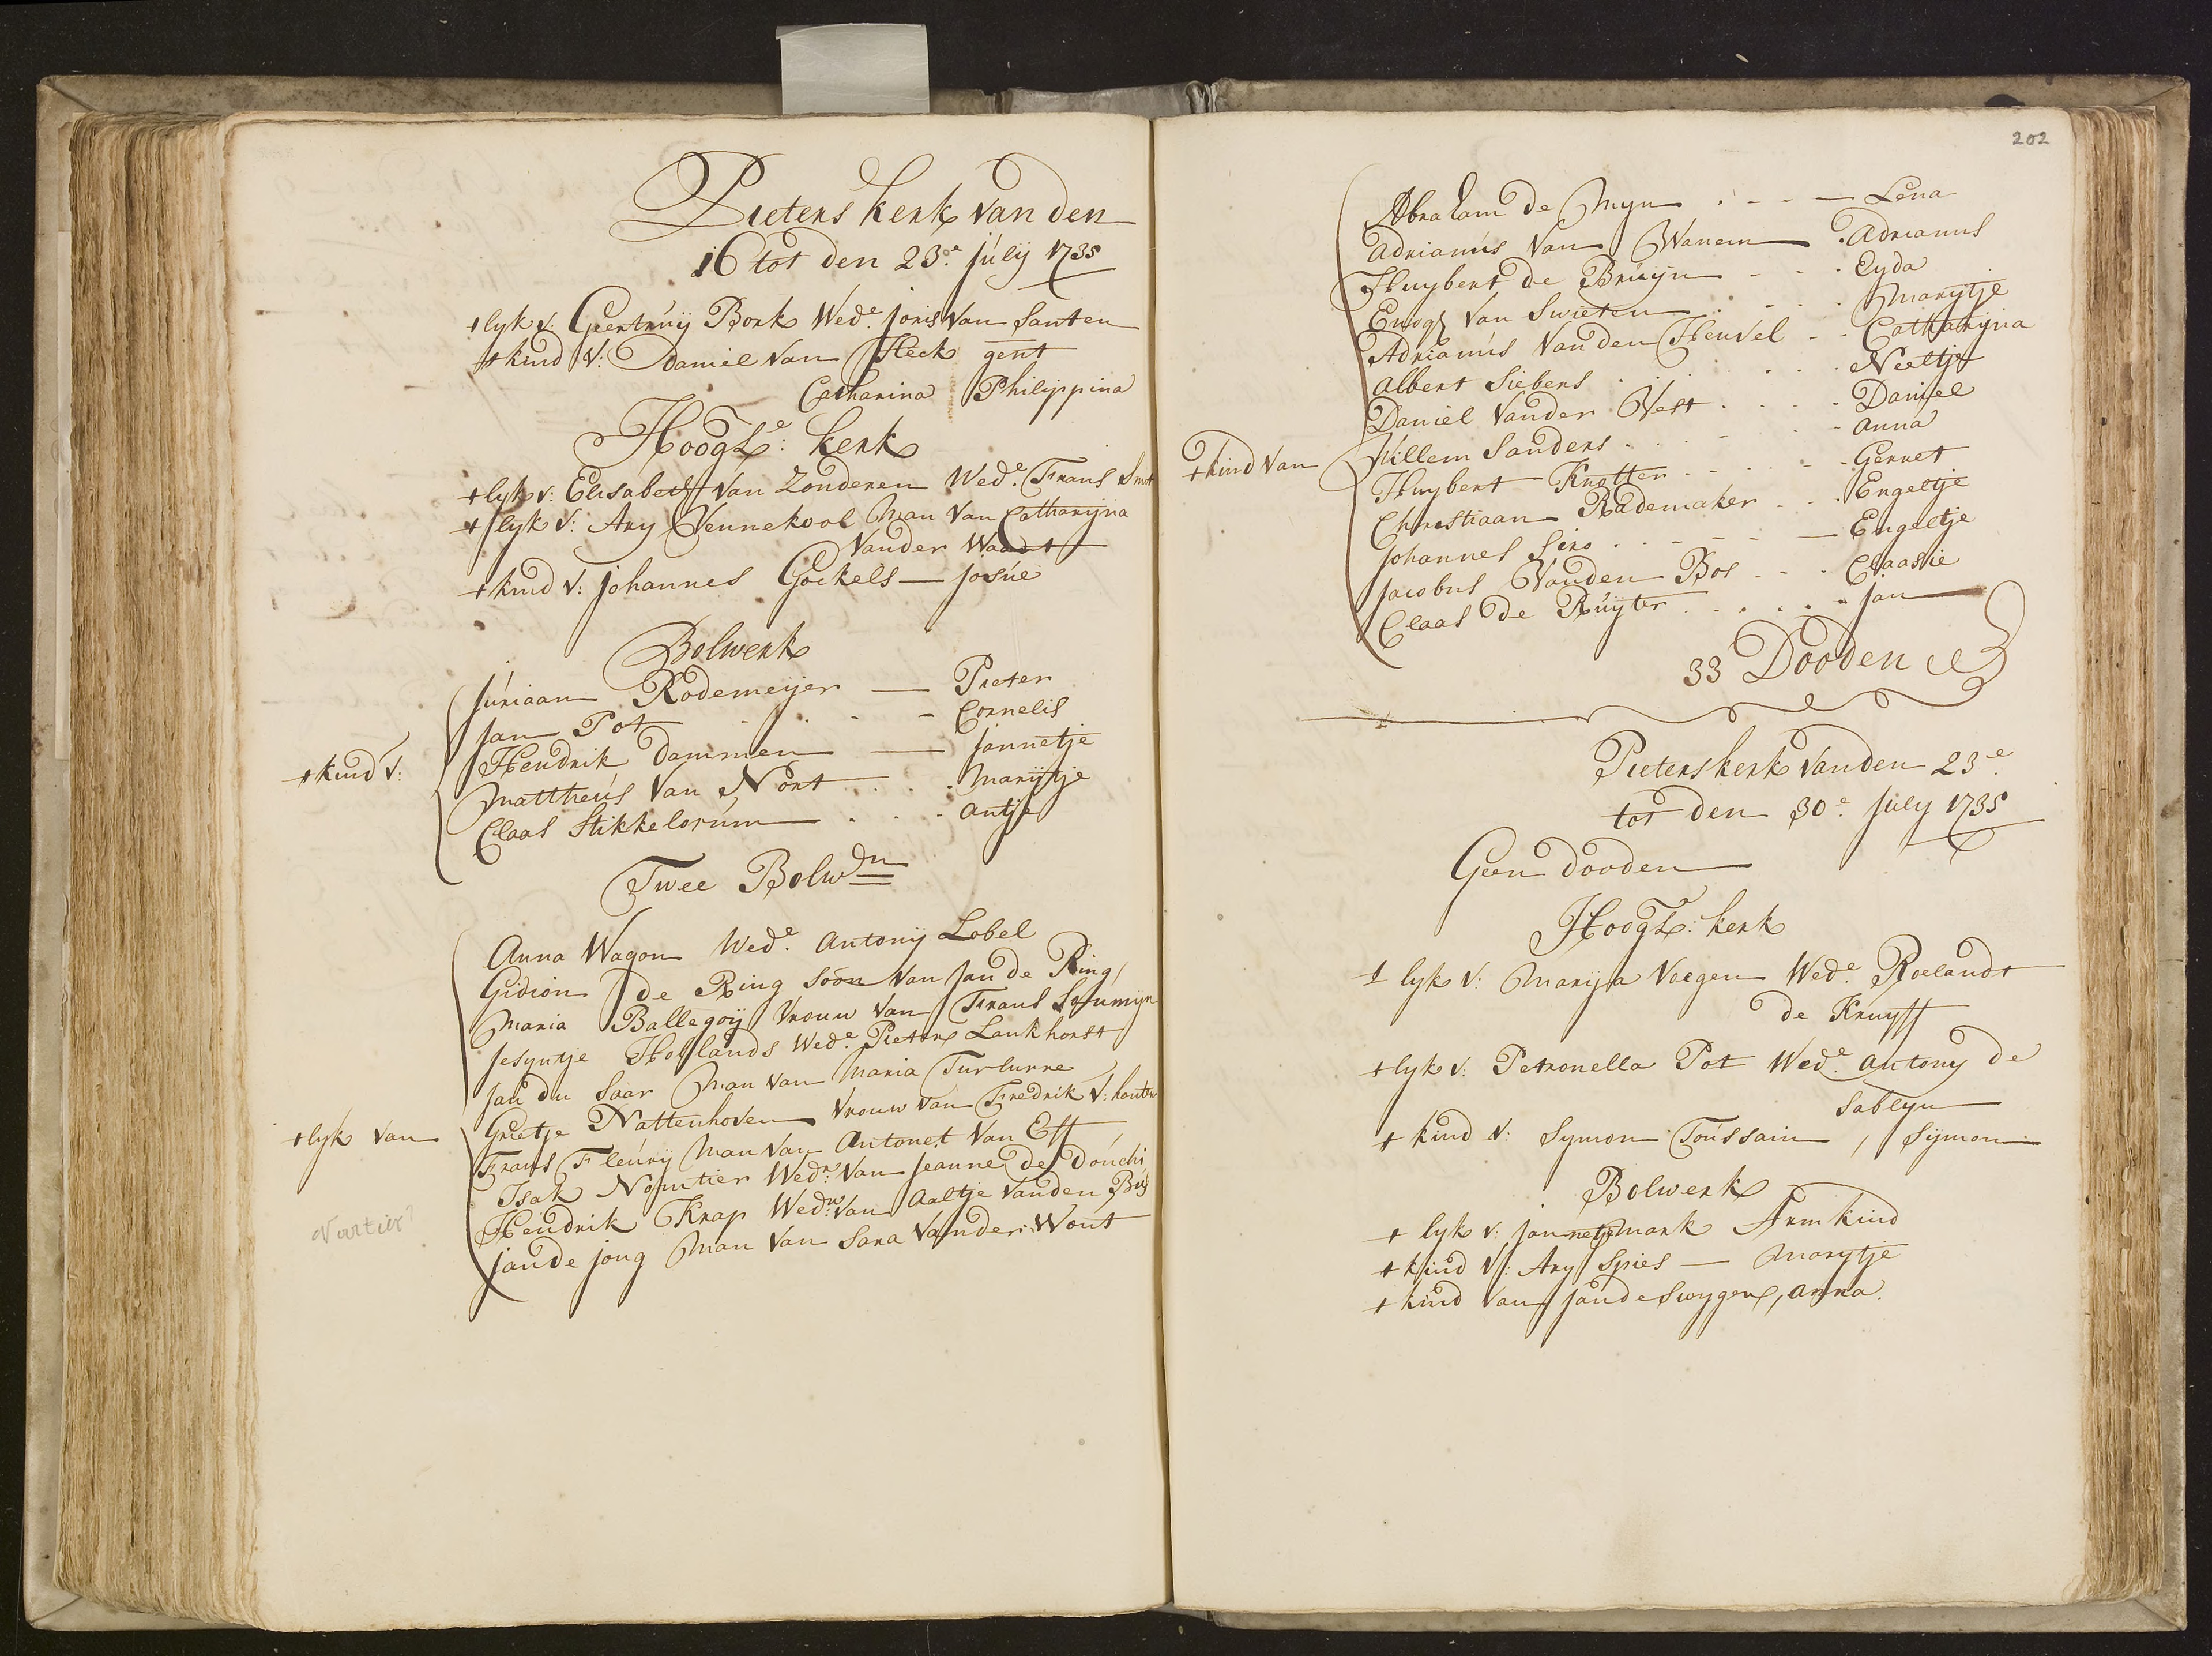 Pieters kerk van den
16 tot den 23e. july 1735
+ lyk v: Geertruy Bork Wede. joris van Santen
+ kind v: Daniel van Heck gent
Catharina Philippina
Hoogle: kerk
+ lyk v: Elisabeth van Zonderen Wede. Frans Smit
+ lyk v: Ary Vennekool man van Catharyna
vander Waart
+ kind v: johannes Gockels — josúe
Bolwerk
Júriaan Rodemeijer — Pieter
Jan Pot - - - - Cornelis
Hendrik Dammen — jannetje
+ kind v:
Mattheús van Nort . . . Marijtje
Claas Stikkelorúm . . . Antje
Twee Bolwdn
Anna Wagon Wede. Antonij Lobel
Gidion de Ring soon van Jan de Ring
Maria Ballegoij vrouw van Frans
Jesyntje Hollands Wede. Pieter Lankhorst
Jan du Saar man van Maria Turlurre
Grietje Nattenhoven vrouw van Fredrik v: houten
+ lyk van
Frans Fleúrij man van Antonet van Eff
Isak Nortier Wedr. van Jeanne de Doúchi
Hendrik Knap Wedr. van Aaltje vanden Bús
Nortier?
jan de jong man van Sara vander Woút
202
Abraham de Myn . - - — Lena
Adrianús van Wanem . Adrianus
Huybert de Brúyn - - . Eyda
Enogh van Swieten . . . . Marytje
Adrianús vanden Heuvel - - Catharyna
Albert Siebers . . . . . . Neeltje
Daniel vander Vest . . . . Daniel
+ kind van
Willem Sanders . . . - - Anna
Huybert Knotter - - - - . Gerret
Christiaan Rademaker - - . Engeltje
Johannes Siro . - - - - — Engeltje
Jacobus vanden Bos - - . Claasie
Claas de Rúyter . . . . . jan
33 Dooden
Pieterskerk vanden 23e.
tot den 30e. july 1735
Geen dooden
Hoogle: kerk
+ lyk v: Marya Voegen Wede. Roelandt
de Kruyff
+ lyk v: Petronella Pot Wede. Antony de
Sablyn
+ kind v: Symon Toússain , Sijmon
Bolwerk
+ lyk v: jannetje mark Arm kind
+ kind v: Ary Spies — Marytje
+ kind van jan de Swyger, Anna.